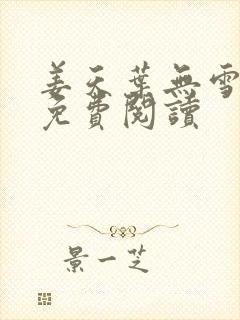 姜天葉無雪
免費閱讀
景一芝